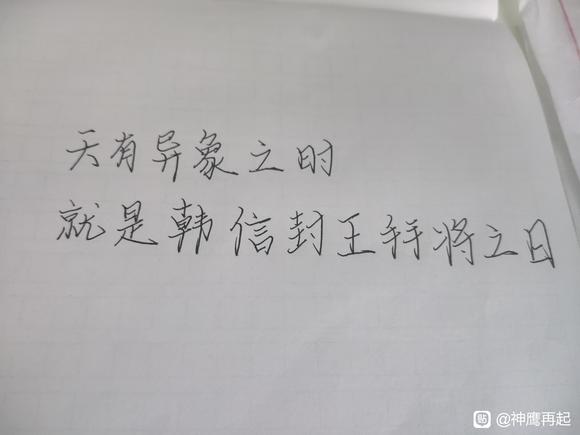 天有异象之时
就是韩信封王拜将之日
贴 @神鹰再起